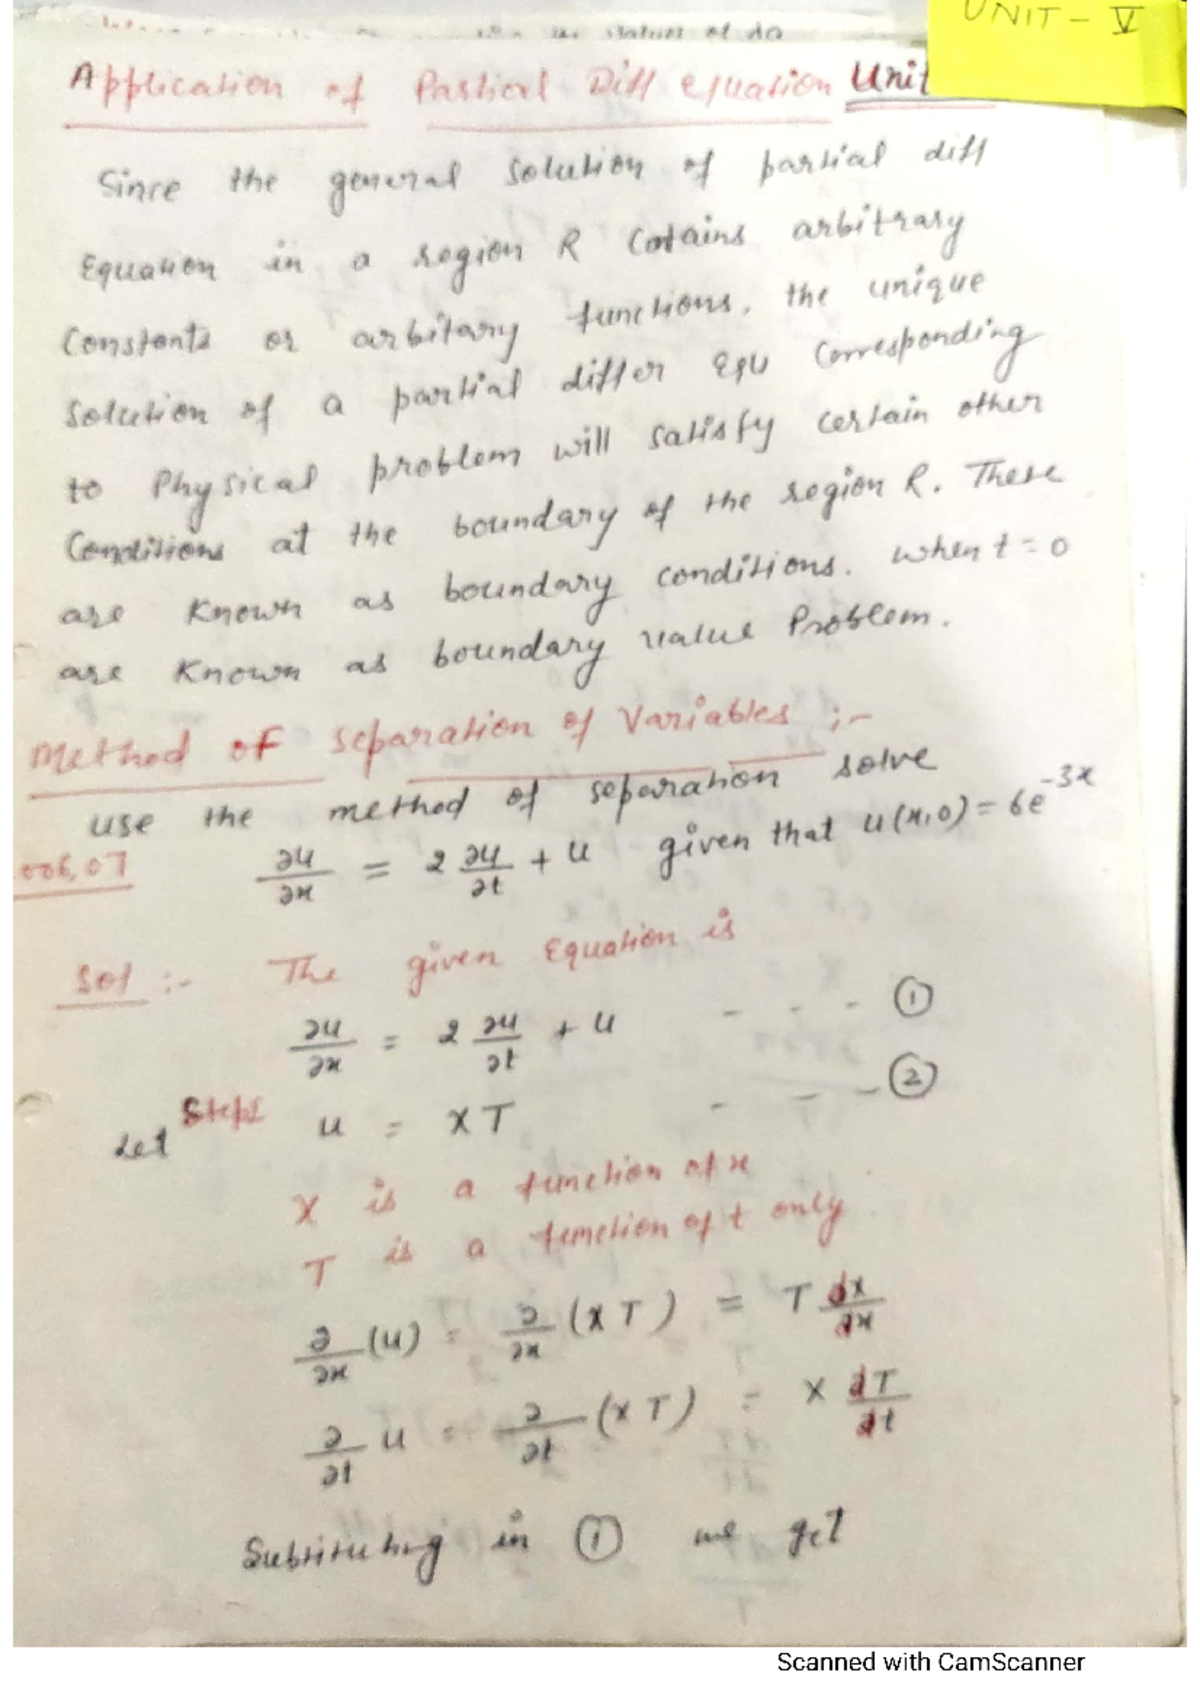 UNIT - V
Application of Partial Diff equation Unit
Since the general solution of partial diff
Equation in a region R Cotains arbitrary
Constants or arbitary functions, the unique
Solution of a partial differ Equ Corresponding
to Physical problem will satisfy certain other
Conditions at the boundary of the region R. These
are Known as boundary conditions. when t = 0
are Known as boundary value Problem.
Method of separation of Variables :-
use the method of separation solve
006,07 ∂u/∂x = 2 ∂u/∂t + u given that u(x,0) = 6e^-3x
Sol :- The given Equation is
∂u/∂x = 2 ∂u/∂t + u - - - ①
Let Step1 u = XT - - - ②
X is a function of x
T is a function of t only
∂/∂x (u) = ∂/∂x (XT) = T dX/dx
∂/∂t u = ∂/∂t (XT) = X dT/dt
Substituting in ① we get
Scanned with CamScanner